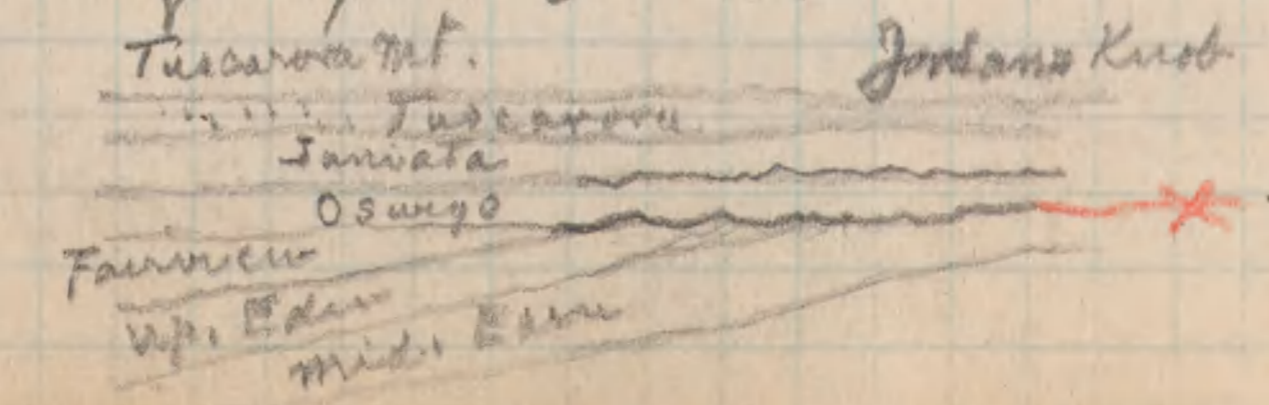 Tuscarora Mt. Jordans Knob
Tuscarora
Juniata
Oswego
Fairview
Up. Eden
Mid. Eden